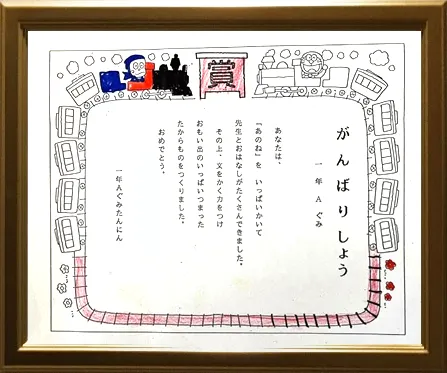 賞
がんばりしょう
一年 A ぐみ
あなたは、
「あのね」を いっぱいかいて
先生とおはなしがたくさんできました。
その上、文をかく力をつけ
おもい出のいっぱいつまった
たからものをつくりました。
おめでとう。
一年Aぐみたんにん